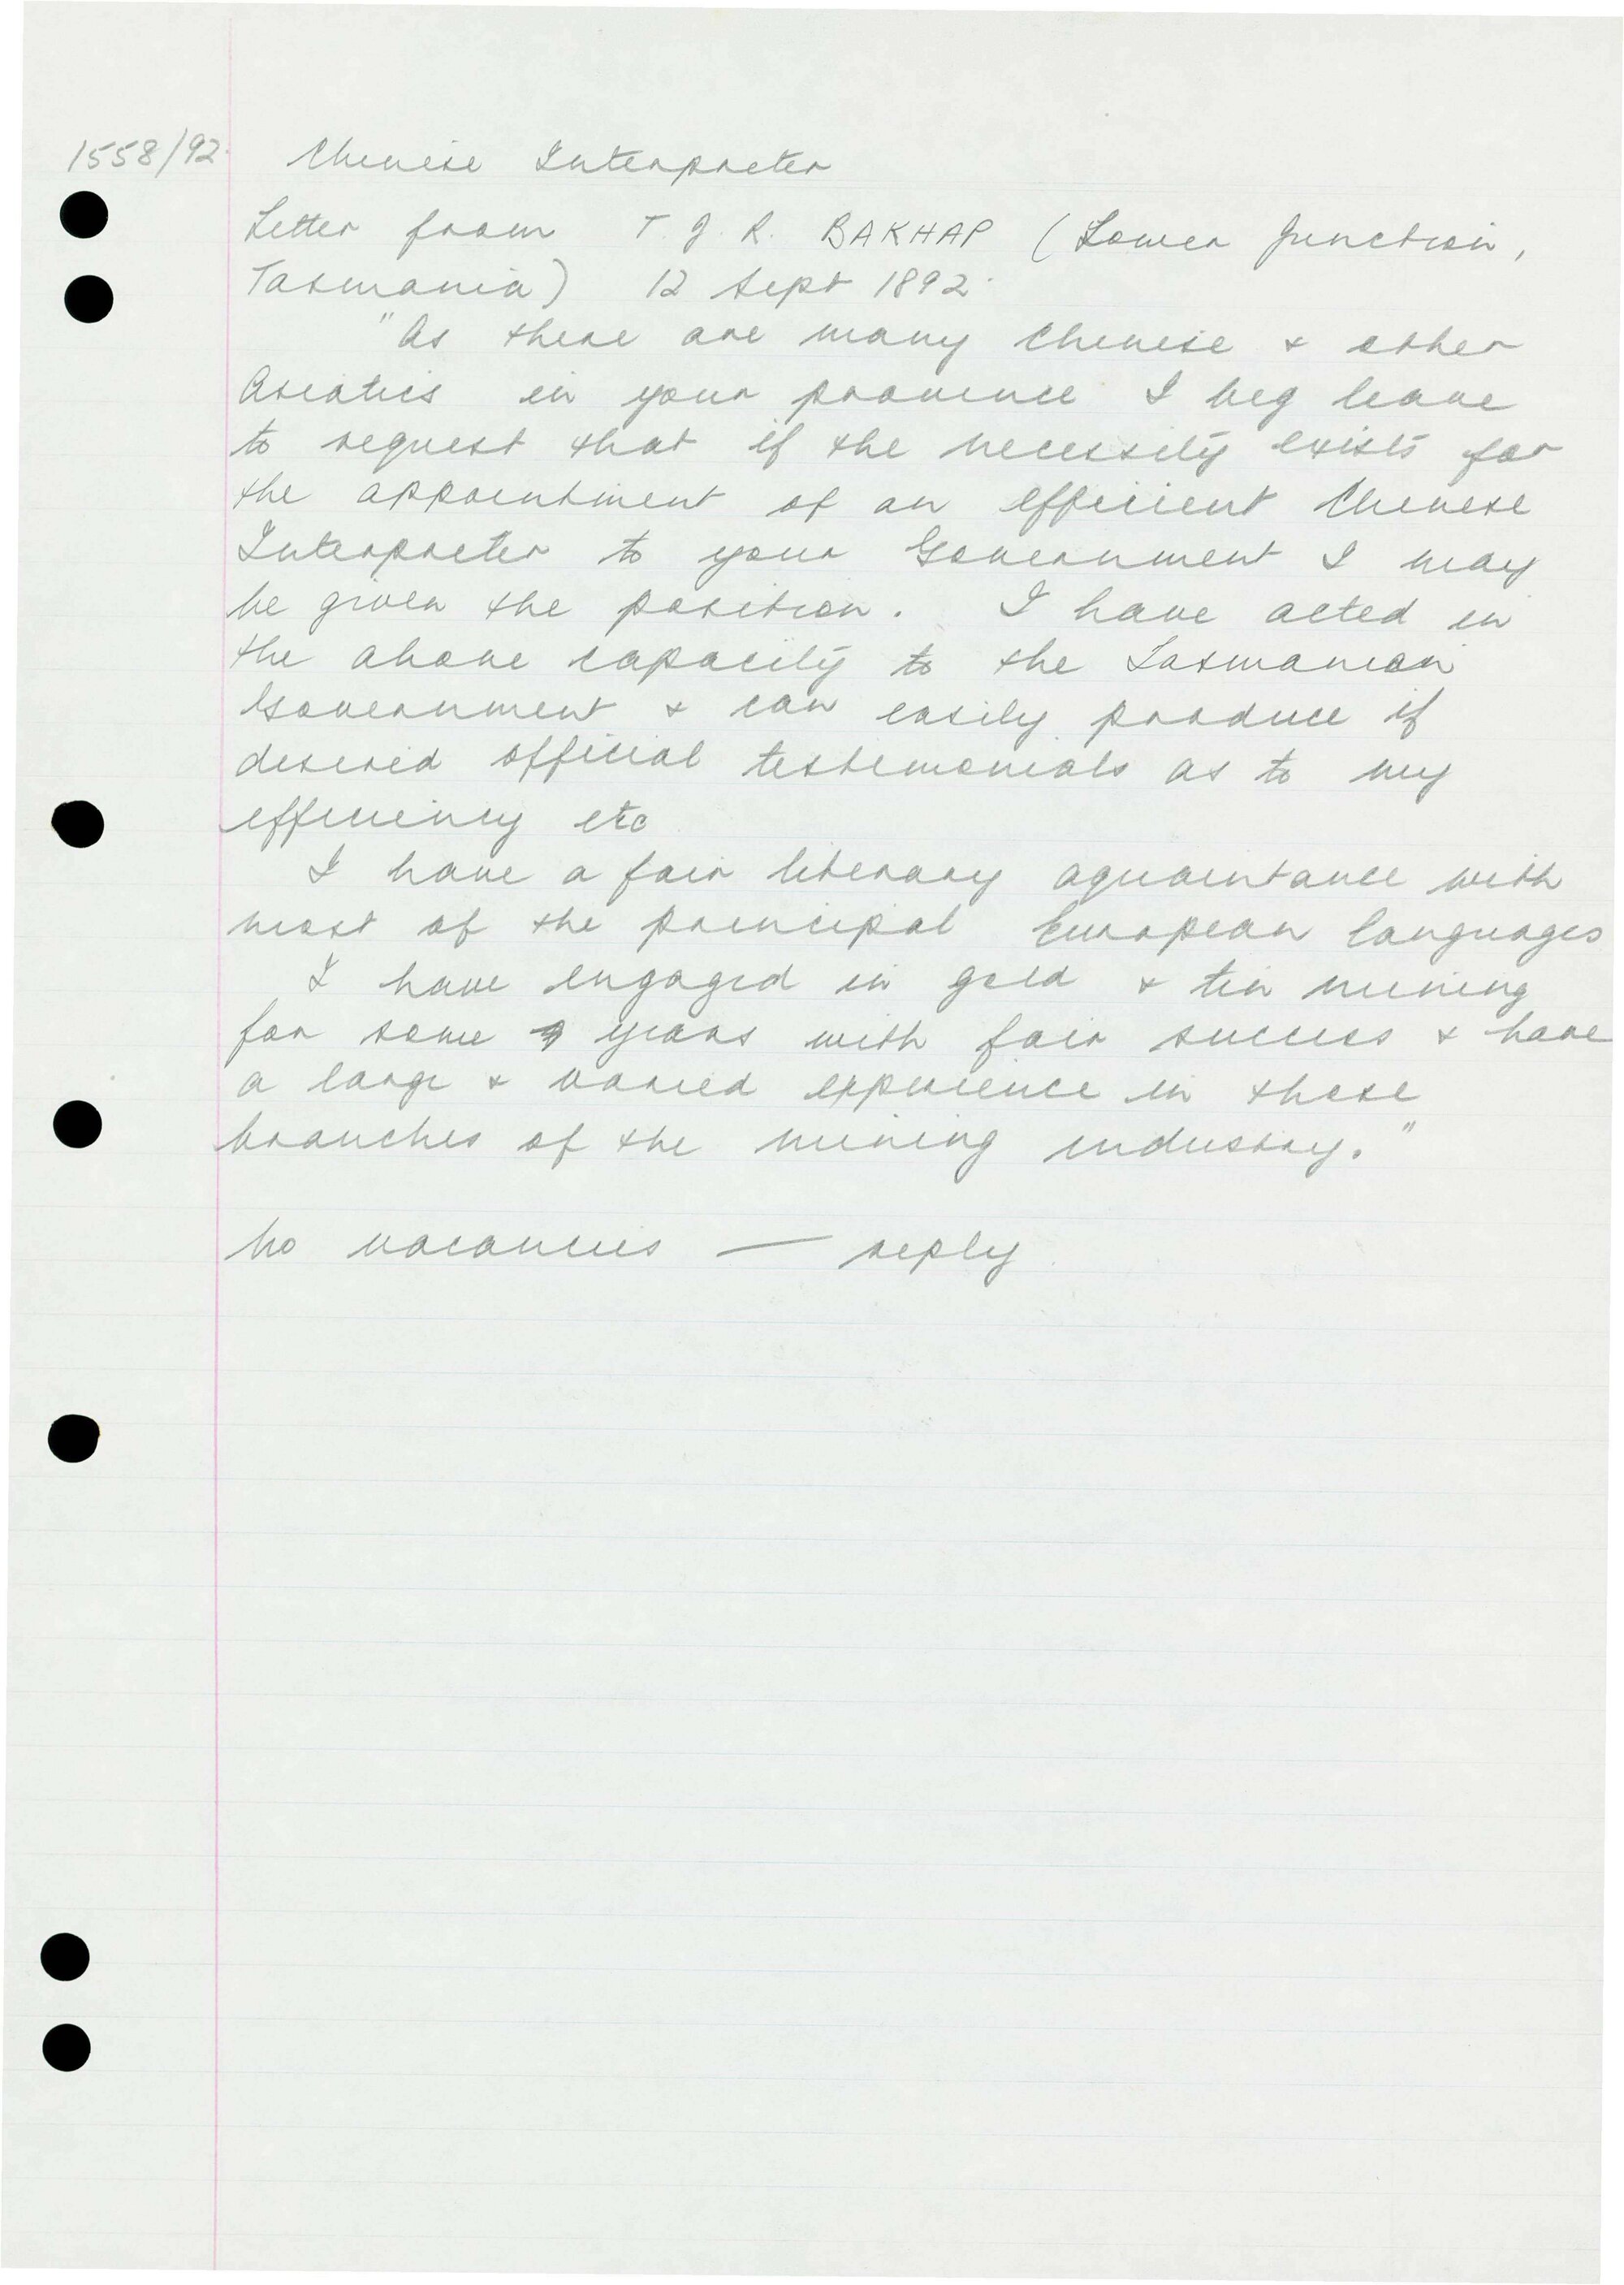 1558/92 Chinese Interpreter
Letter from T. J. R. BAKHAP (Lower Junction,
Tasmania) 12 Sept 1892.
"As there are many Chinese & other
Asiatics in your province I beg leave
to request that if the necessity exists for
the appointment of an efficient Chinese
Interpreter to your Government I may
be given the position. I have acted in
the above capacity to the Tasmanian
Government & can easily produce if
desired official testimonials as to my
efficiency etc
I have a fair literary aquaintance with
most of the principal European languages
I have engaged in gold & tin mining
for some years with fair success & have
a large & varied experience in these
branches of the mining industry."
No vacancies — reply